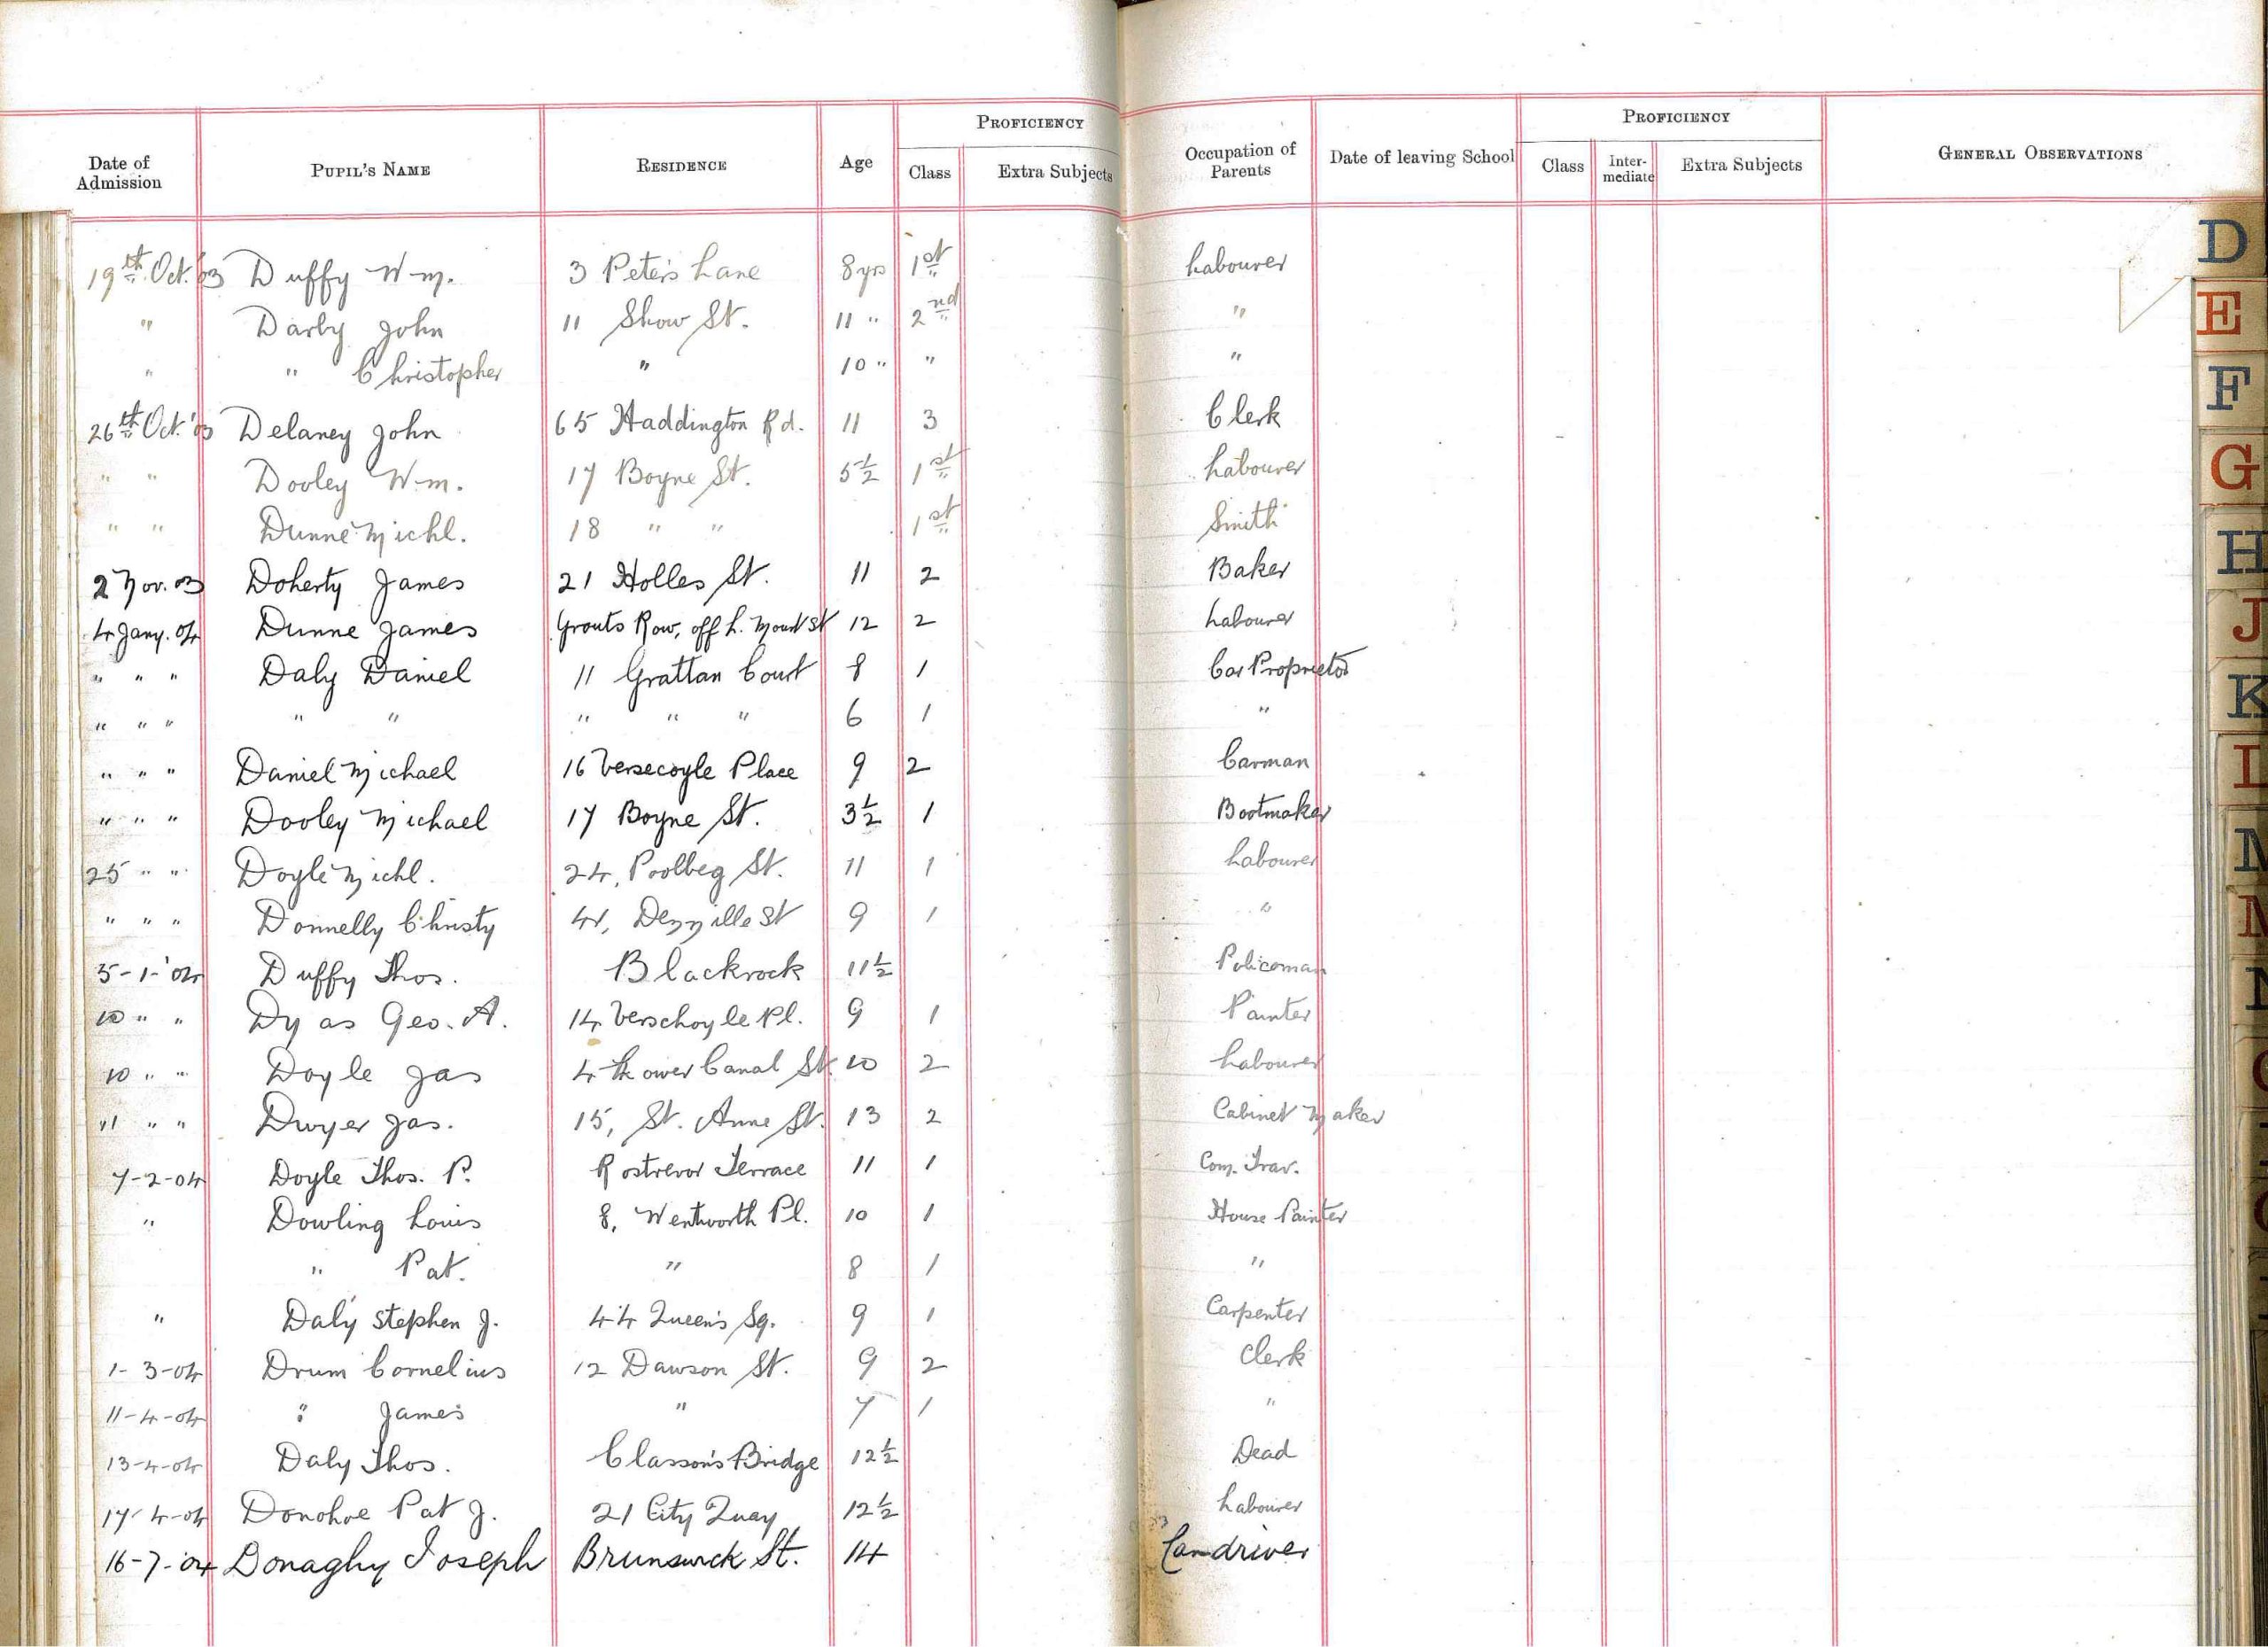 Date of Admission PUPIL'S NAME RESIDENCE Age PROFICIENCY Class Extra Subjects Occupation of Parents Date of leaving School PROFICIENCY Class Inter-mediate Extra Subjects GENERAL OBSERVATIONS
19th Oct. '03 Duffy Wm. 3 Peter's Lane 8 yrs 1st Labourer
" Darby John 11 Show St. 11 " 2nd "
" " Christopher " 10 " " "
26th Oct. '03 Delaney John 65 Haddington Rd. 11 3 Clerk
" " Dooley Wm. 17 Boyne St. 5½ 1st Labourer
" " Dunne Michl. 18 " " 1st Smith
2 Nov. 03 Doherty James 21 Holles St. 11 2 Baker
4 Jany. 04 Dunne James Grants Row, off L. Mount St 12 2 Labourer
" " " Daly Daniel 11 Grattan Court 8 1 Car Proprietor
" " " " " " " " 6 1 "
" " " Daniel Michael 16 Versecoyle Place 9 2 Carman
" " " Dooley Michael 17 Boyne St. 3½ 1 Bootmaker
25 " " Doyle Michl. 24, Poolbeg St. 11 1 Labourer
" " " Donnelly Christy 41, Denzille St 9 1 "
5-1-'04 Duffy Thos. Blackrock 11½ Policeman
10 " " Dyas Geo. A. 14 Verschoyle Pl. 9 1 Painter
10 " " Doyle Jas 4 Lower Canal St. 10 2 Labourer
11 " " Dwyer Jas. 15, St. Anne St. 13 2 Cabinet Maker
7-2-04 Doyle Thos. P. Rostrevor Terrace 11 1 Com. Trav.
" Dowling Louis 8, Wentworth Pl. 10 1 House Painter
" Pat. " 8 1 "
" Daly Stephen J. 44 Queen's Sq. 9 1 Carpenter
1-3-04 Drum Cornelius 12 Dawson St. 9 2 Clerk
11-4-04 " James " 7 1 "
13-4-04 Daly Thos. Classon's Bridge 12½ Dead
17-4-04 Donohoe Pat J. 21 City Quay 12½ Labourer
16-7-04 Donaghy Joseph Brunswick St. 14 Car driver
D
E
F
G
H
J
K
L
M